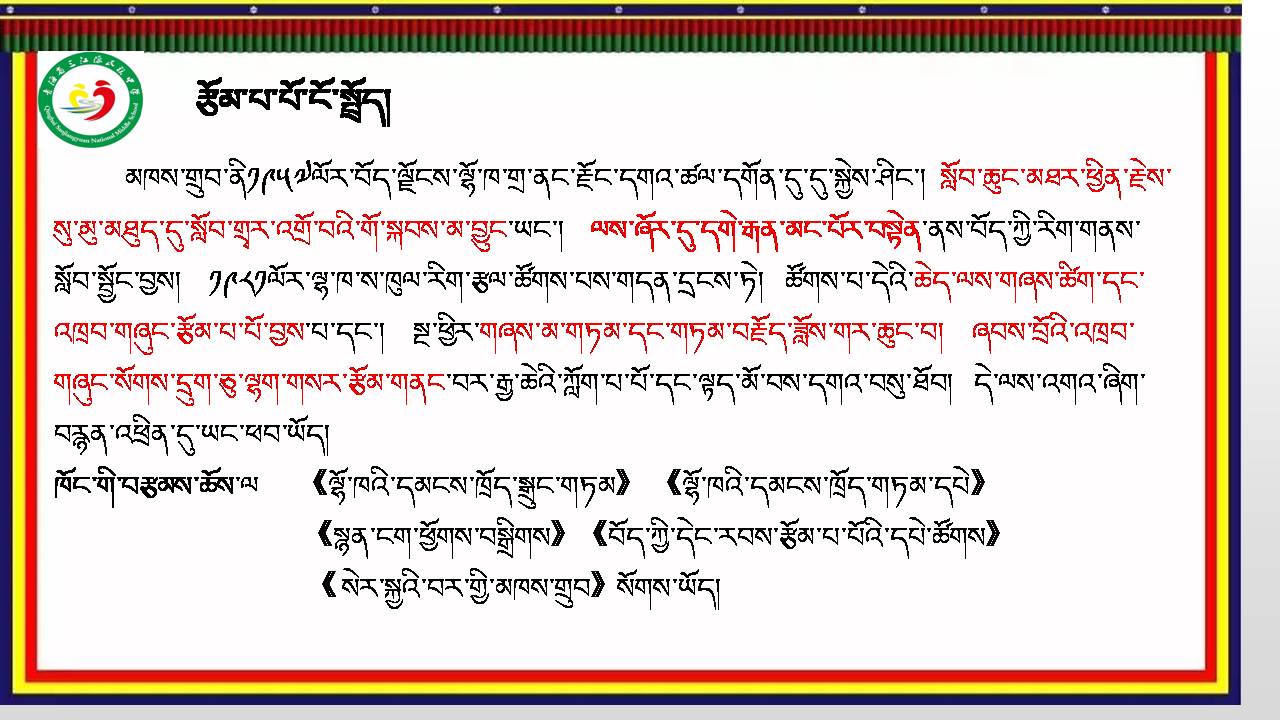 青海省三江源民族中学
Qinghai Sanjiangyuan National Middle School
རྩོམ་པ་པོ་ངོ་སྤྲོད།
མཁས་གྲུབ་ནི༡༩༥༧ལོར་བོད་ལྗོངས་ལྷོ་ཁ་གྲ་ནང་རྫོང་དགའ་ཚལ་དགོན་དུ་དུ་སྐྱེས་ཤིང་། སློབ་ཆུང་མཐར་ཕྱིན་རྗེས་
སུ་མུ་མཐུད་དུ་སློབ་གྲྭར་འགྲོ་བའི་གོ་སྐབས་མ་བྱུང་ཡང་། ལས་ཞོར་དུ་དགེ་རྒན་མང་པོར་བསྟེན་ནས་བོད་ཀྱི་རིག་གནས་
སློབ་སྦྱོང་བྱས། ༡༩༨༡ལོར་ལྷ་ཁ་ས་ཁུལ་རིག་རྩལ་ཚོགས་པས་གདན་དྲངས་ཏེ། ཚོགས་པ་དེའི་ཆེད་ལས་གཞས་ཚིག་དང་
འཁྲབ་གཞུང་རྩོམ་པ་པོ་བྱས་པ་དང་། སྔ་ཕྱིར་གཞས་མ་གཏམ་དང་གཏམ་བརྗོད་ཟློས་གར་ཆུང་བ། ཞབས་བྲོའི་འཁྲབ་
གཞུང་སོགས་དྲུག་ཅུ་ལྷག་གསར་རྩོམ་གནང་བར་རྒྱ་ཆེའི་ཀློག་པ་པོ་དང་ལྟད་མོ་བས་དགའ་བསུ་ཐོབ། དེ་ལས་འགའ་ཞིག་
བརྙན་འཕྲིན་དུ་ཡང་ཕབ་ཡོད།
ཁོང་གི་བརྩམས་ཆོས་ལ 《ལྷོ་ཁའི་དམངས་ཁྲོད་སྒྲུང་གཏམ》 《ལྷོ་ཁའི་དམངས་ཁྲོད་གཏམ་དཔེ》
《སྙན་ངག་ཕྱོགས་བསྒྲིགས》 《བོད་ཀྱི་དེང་རབས་རྩོམ་པ་པོའི་དཔེ་ཚོགས》
《 སེར་སྐྱའི་བར་གྱི་མཁས་གྲུབ》 སོགས་ཡོད།